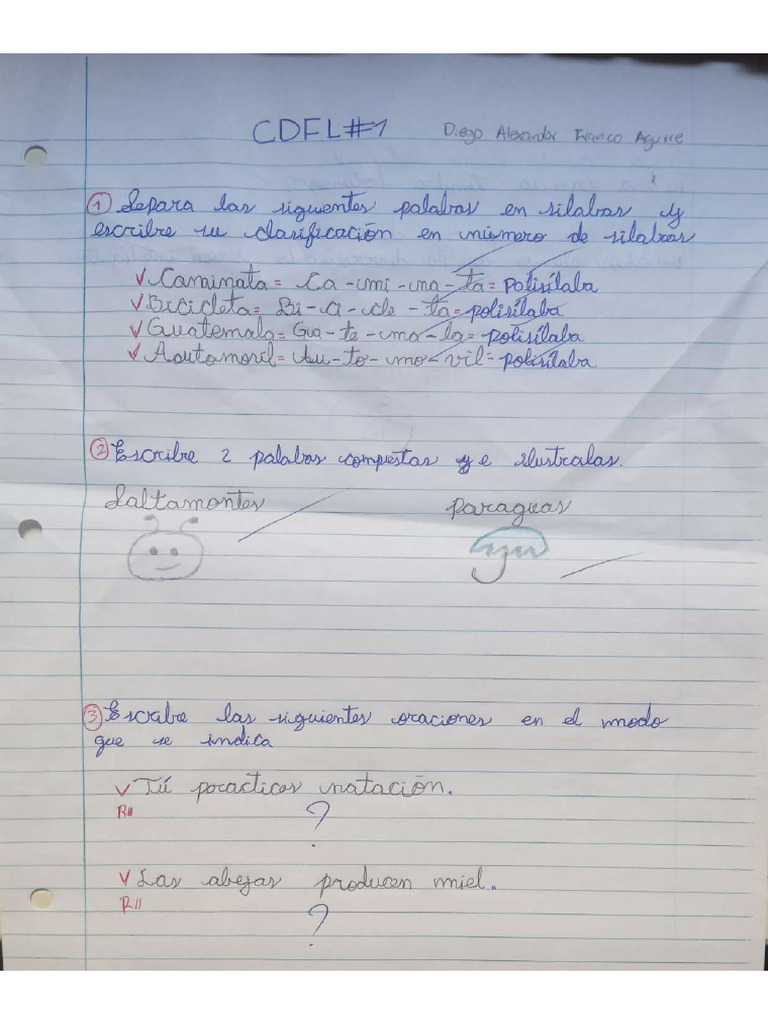 CDFL#1 Diego Alexander Franco Aguirre
① Separa las siguientes palabras en silabas y
escribe su clasificación en número de silabas
✓ Caminata = Ca - mi - na - ta = polisílaba
✓ Bicicleta = Bi - ci - cle - ta = polisílaba
✓ Guatemala = Gua - te - ma - la = polisílaba
✓ Aoutomovil = Au - to - mo - vil = polisílaba
② Escribe 2 palabras compuestas y e ilustralas.
Saltamontes paraguas
③ Escribe las siguientes oraciones en el modo
que se indica
✓ Tú practicas natación.
R//
?
✓ Las abejas producen miel.
R//
?